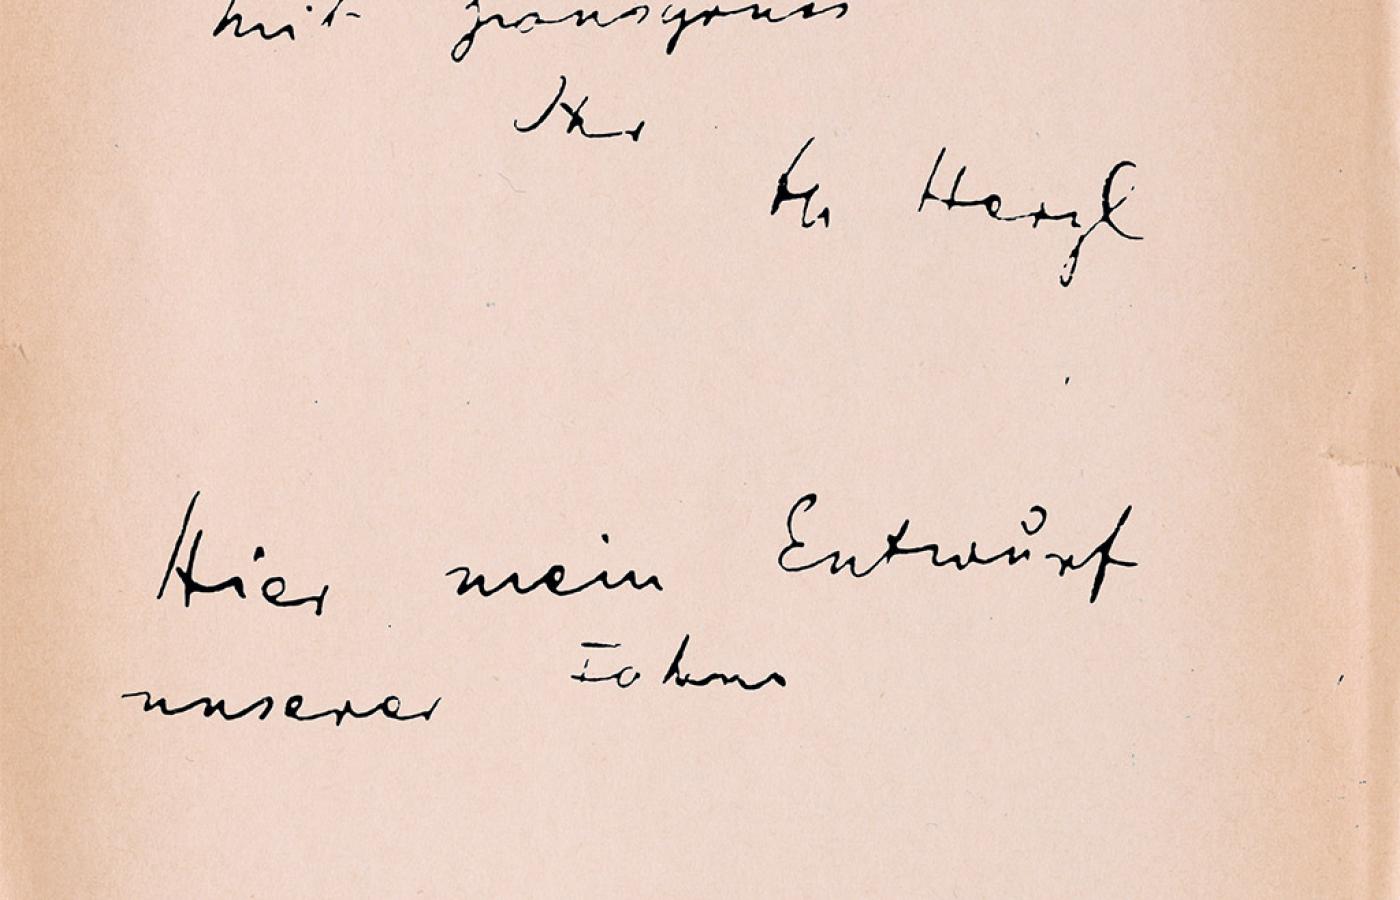 mit Zionsgruss
Ihr
Th Herzl
Hier mein Entwurf
unserer Fahne